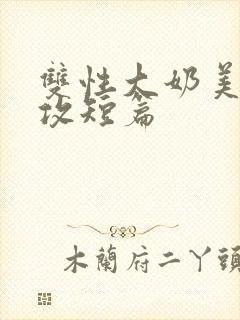 雙性大奶美
攻短篇
木蘭府二丫頭